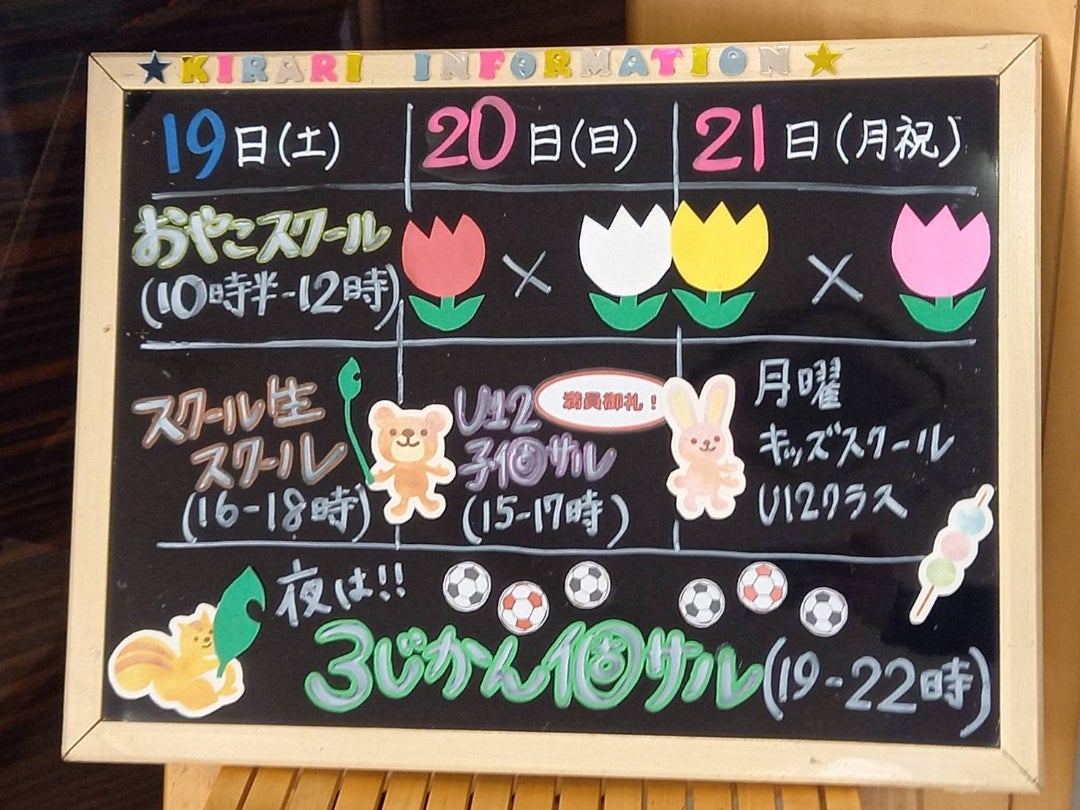 ★KIRARI INFORMATION★
19日(土)
20日(日)
21日(月祝)
おやこスクール
(10時半-12時)
×
×
スクール生
スクール
(16-18時)
U12
満員御礼！
子個サル
(15-17時)
月曜
キッズスクール
U12クラス
夜は!!
3じかん個サル(19-22時)